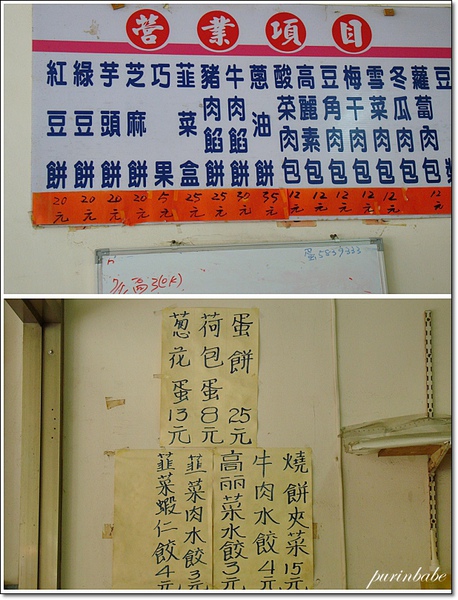 營業項目
紅豆餅 20元
綠豆餅 20元
芋頭餅 20元
芝麻餅 20元
巧果 5元
韮菜盒 25元
豬肉餡餅 25元
牛肉餡餅 30元
蔥油餅 35元
酸菜肉包 12元
高麗素包 12元
豆角肉包 12元
梅干肉包 12元
雪菜肉包 12元
冬瓜肉包
蘿蔔肉包 12元
豆
蛋:5839333
高3(OK)
蛋餅 25元
荷包蛋8元
蔥花蛋13元
燒餅夾菜15元
牛肉水餃4元
高丽菜水餃3元
韮菜肉水餃3元
韮菜蝦仁餃4元
purinbabe